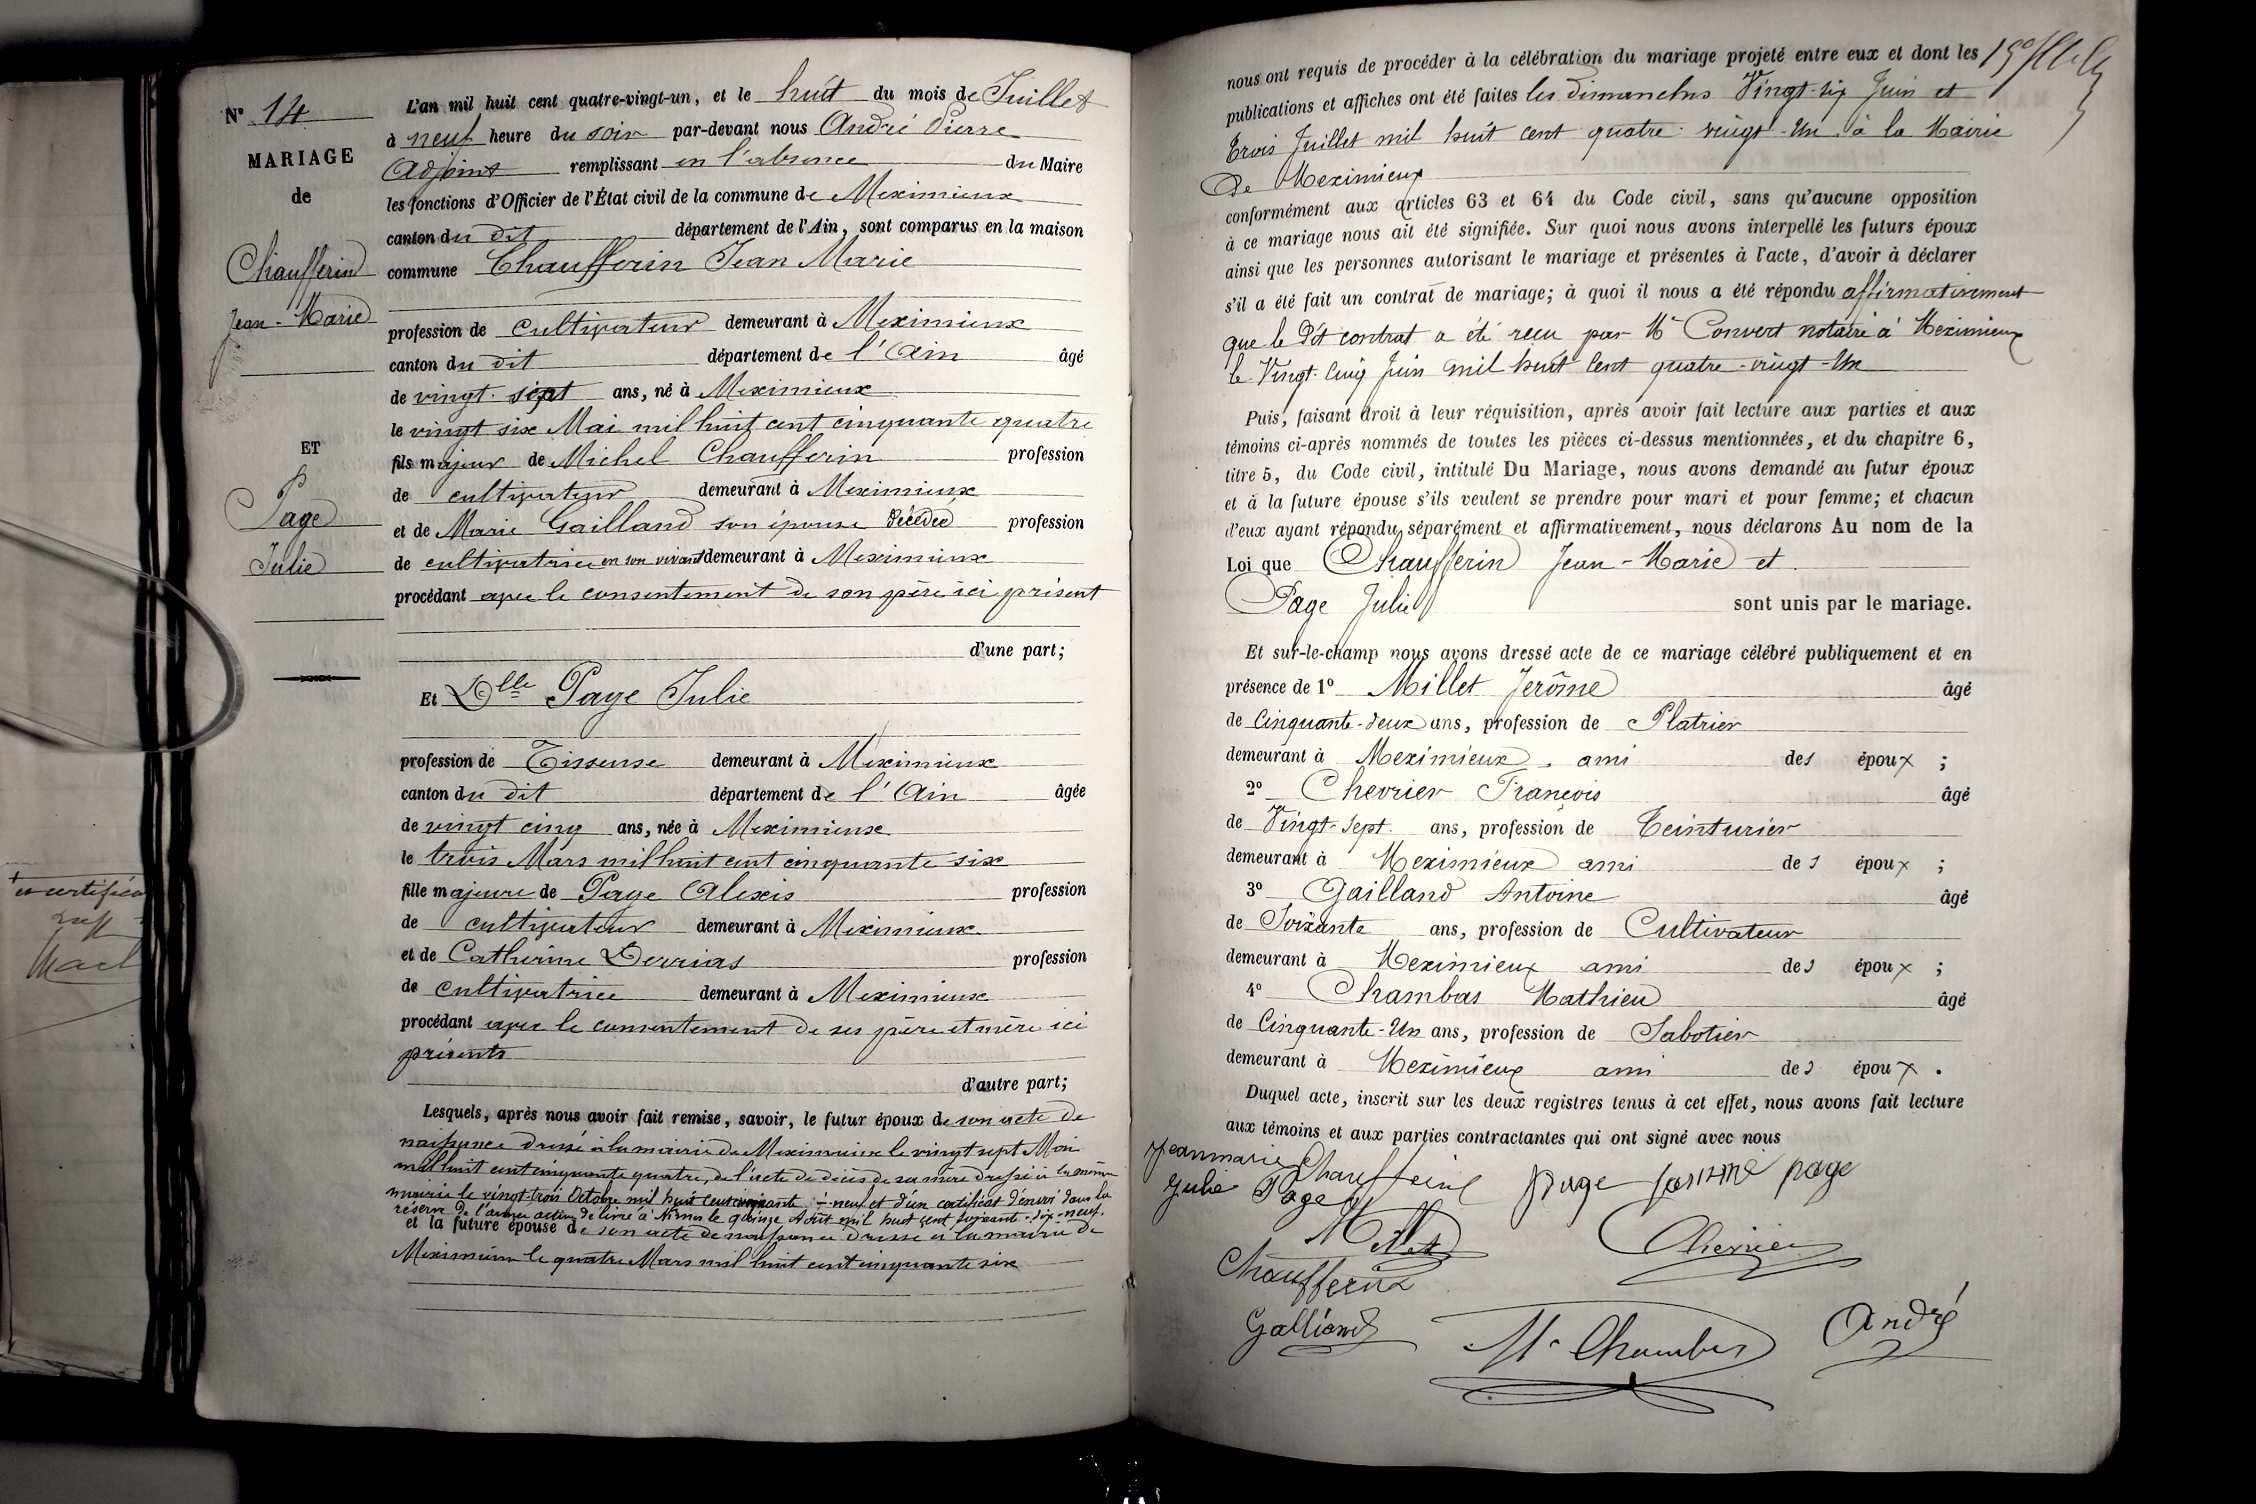 N° 14
MARIAGE
de
Chaufferin
Jean-Marie
ET
Page
Julie
L'an mil huit cent quatre-vingt-un, et le huit du mois de Juillet
à neuf heure du soir par-devant nous André Pierre
Adjoint remplissant en l'absence du Maire
les fonctions d'Officier de l'État civil de la commune de Meximieux
canton du dit département de l'Ain, sont comparus en la maison
commune Chaufferin Jean Marie
profession de cultivateur demeurant à Meximieux
canton du dit département de l'Ain âgé
de vingt-sept ans, né à Meximieux
le vingt six Mai mil huit cent cinquante quatre
fils majeur de Michel Chaufferin profession
de cultivateur demeurant à Meximieux
et de Marie Gailland son épouse décédée profession
de cultivatrice en son vivant demeurant à Meximieux
procédant avec le consentement de son père ici présent
d'une part;
Et Dlle Page Julie
profession de Tisseuse demeurant à Meximieux
canton du dit département de l'Ain âgée
de vingt cinq ans, née à Meximieux
le trois Mars mil huit cent cinquante six
fille majeure de Page Alexis profession
de cultivateur demeurant à Meximieux
et de Catherine Derrias profession
de cultivatrice demeurant à Meximieux
procédant avec le consentement de ses père et mère ici
présents
d'autre part;
Lesquels, après nous avoir fait remise, savoir, le futur époux de son acte de
naissance dressé à la mairie de Meximieux le vingt sept Mai
mil huit cent cinquante quatre, de l'acte de décès de sa mère dressé à la même
mairie le vingt-trois Octobre mil huit cent soixante-neuf et d'un certificat d'envoi dans la
réserve de l'armée active délivré à Nimes le quinze Août mil huit cent soixante-dix-neuf.
et la future épouse de son acte de naissance dressé à la mairie de
Meximieux le quatre Mars mil huit cent cinquante six
nous ont requis de procéder à la célébration du mariage projeté entre eux et dont les
publications et affiches ont été faites les dimanches Vingt-six Juin et
Trois Juillet mil huit cent quatre-vingt-Un à la Mairie
de Meximieux
conformément aux articles 63 et 64 du Code civil, sans qu'aucune opposition
à ce mariage nous ait été signifiée. Sur quoi nous avons interpellé les futurs époux
ainsi que les personnes autorisant le mariage et présentes à l'acte, d'avoir à déclarer
s'il a été fait un contrat de mariage; à quoi il nous a été répondu affirmativement
que le Dit contrat a été reçu par Me Convert notaire à Meximieux
le Vingt-Cinq Juin mil huit Cent quatre-vingt-Un
Puis, faisant droit à leur réquisition, après avoir fait lecture aux parties et aux
témoins ci-après nommés de toutes les pièces ci-dessus mentionnées, et du chapitre 6,
titre 5, du Code civil, intitulé Du Mariage, nous avons demandé au futur époux
et à la future épouse s'ils veulent se prendre pour mari et pour femme; et chacun
d'eux ayant répondu séparément et affirmativement, nous déclarons Au nom de la
Loi que Chaufferin Jean-Marie et
Page Julie sont unis par le mariage.
Et sur-le-champ nous avons dressé acte de ce mariage célébré publiquement et en
présence de 1° Millet Jerôme âgé
de Cinquante-deux ans, profession de Platrier
demeurant à Meximieux, ami des époux ;
2° Chevrier François âgé
de Vingt-sept ans, profession de Teinturier
demeurant à Meximieux ami des époux ;
3° Gailland Antoine âgé
de Soixante ans, profession de Cultivateur
demeurant à Meximieux ami des époux ;
4° Chambas Mathieu âgé
de Cinquante-Un ans, profession de Sabotier
demeurant à Meximieux ami des époux .
Duquel acte, inscrit sur les deux registres tenus à cet effet, nous avons fait lecture
aux témoins et aux parties contractantes qui ont signé avec nous
Jeanmarie Chaufferin page page
Julie Page
Millet Chevrier
Chaufferin
Galliand M. Chambas André